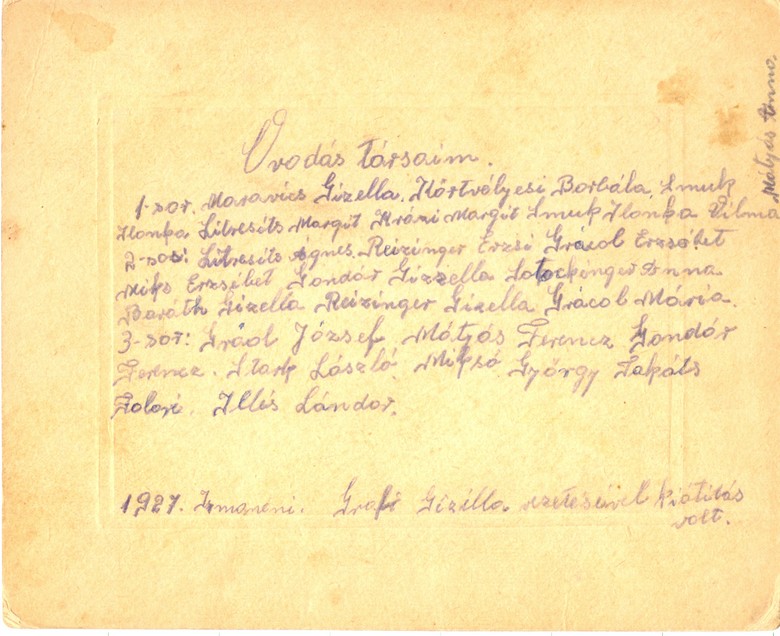 Ovodás társaim.
1-sor. Maravics Gizella. Körtvélyesi Borbála, Smuk
Ilonka Litresits Margit Krázi Margit Smuk Ilonka Vilma
2-sor: Litresits Ágnes. Reizinger Erzsi Grácol Erzsébet
Miks Erzsébet Gondár Gizzella Anna
Baráth Gizella Reizinger Gizella Grácol Mária.
3-sor: Gráol József. Mátyás Ferencz Gondár
Ferencz. Stark László. Mikso György Takáts
Illés Sándor.
1927. Grafi Gizella volt.
Mátyás Anna.